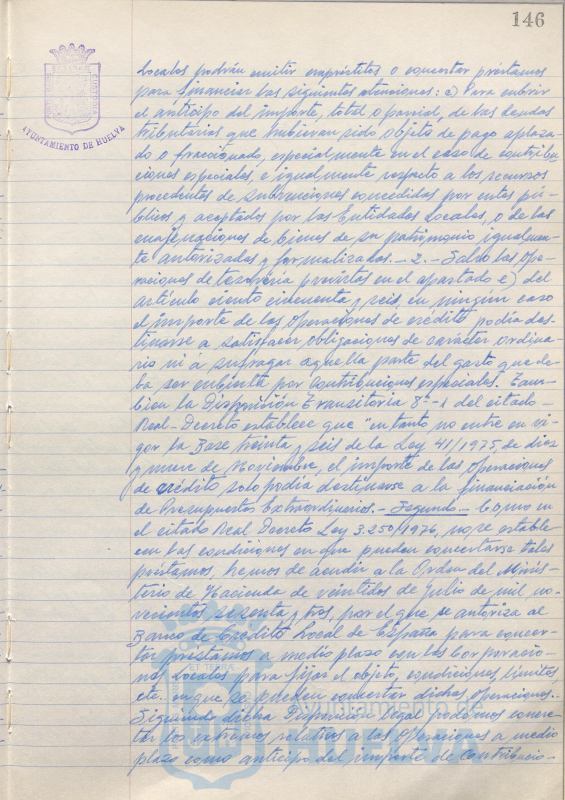 146
AYUNTAMIENTO DE HUELVA
Locales podrán emitir empréstitos o concertar préstamos
para financiar las siguientes atenciones: e) Para cubrir
el anticipo del importe, total o parcial, de las deudas
tributarias que hubieran sido objeto de pago aplaza-
do o fraccionado, especialmente en el caso de contribu
ciones especiales, e igualmente respecto a los recursos
procedentes de subvenciones concedidas por entes pú-
blicos y aceptadas por las Entidades Locales, o de las
enajenaciones de bienes de su patrimonio igualmen-
te autorizadas y formalizadas.- 2.- Salvo las ope-
raciones de tesorería previstas en el apartado e) del
artículo ciento cincuenta y seis, en ningún caso
el importe de las operaciones de crédito podía des-
tinarse a satisfacer obligaciones de carácter ordina-
rio ni a sufragar aquella parte del gasto que de-
ba ser cubierta por contribuciones especiales. Tam-
bien la Disposición Transitoria 8ª-1 del citado
Real-Decreto establece que "en tanto no entre en vi-
gor la Base treinta y seis de la Ley 41/1975, de diez
y nueve de Noviembre, el importe de las operaciones
de crédito solo podía destinarse a la financiación
de Presupuestos Extraordinarios.- Segundo.- Como en
el citado Real Decreto Ley 3.250/1976, no se estable
cen las condiciones en que pueden concertarse tales
préstamos, hemos de acudir a la Orden del Minis-
terio de Hacienda de veintidos de Julio de mil no-
vecientos sesenta y tres, por el que se autoriza al
Banco de Crédito Local de España para concer-
tar préstamos a medio plazo con las Corporacio-
nes Locales para fijar el objeto, condiciones, límites
etc. en que se pueden concertar dichas operaciones.
Siguiendo dicha Disposición legal podemos concre-
tar los extremos relativos a las operaciones a medio
plazo como anticipo del importe de contribucio-
Ayuntamiento de
HUELVA